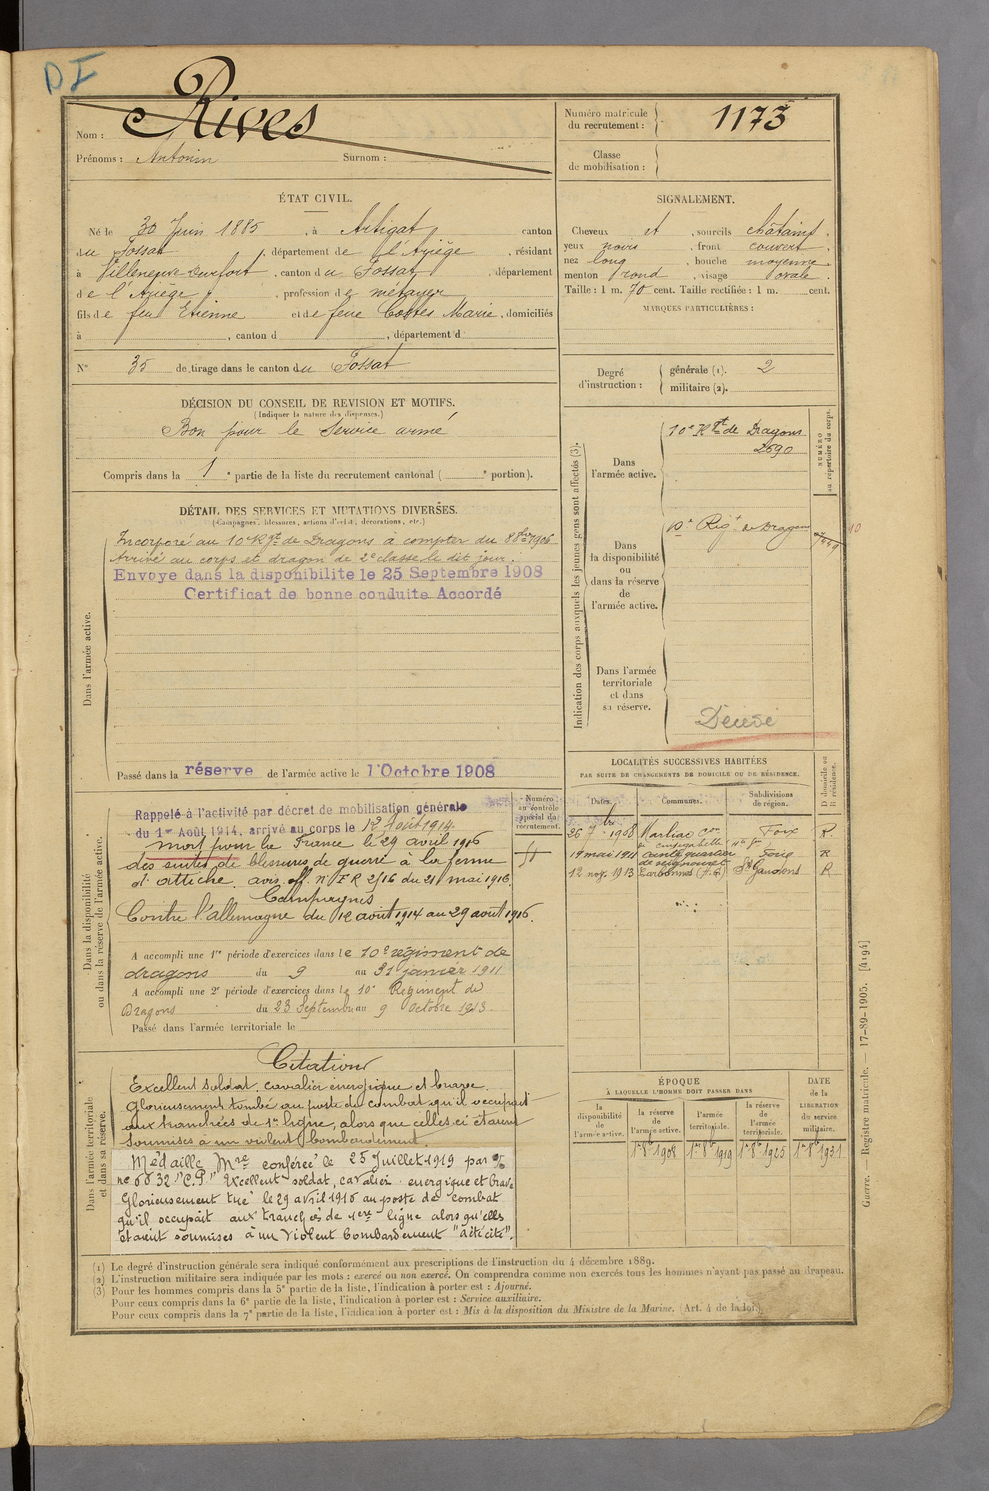 D I
Nom : Rives
Prénoms : Antonin Surnom :
Numéro matricule du recrutement : 1173
Classe de mobilisation :
ÉTAT CIVIL.
Né le 30 Juin 1885, à Artigat, canton
du Fossat, département de l'Ariège, résidant
à Villeneuve Durfort, canton du Fossat, département
de l'Ariège, profession de métayer
fils de feu Etienne et de feue Cottes Marie, domiciliés
à , canton d , département d
N° 35 de tirage dans le canton du Fossat
SIGNALEMENT.
Cheveux et , sourcils châtains
yeux noirs , front couvert
nez long , bouche moyenne
menton rond , visage ovale.
Taille : 1 m. 70 cent. Taille rectifiée : 1 m. cent.
MARQUES PARTICULIÈRES :
Degré d'instruction : générale (1). 2
militaire (2).
DÉCISION DU CONSEIL DE REVISION ET MOTIFS.
(Indiquer la nature des dispenses.)
Bon pour le Service armé
Compris dans la 1e partie de la liste du recrutement cantonal ( e portion).
DÉTAIL DES SERVICES ET MUTATIONS DIVERSES.
(Campagnes, blessures, actions d'éclat, décorations, etc.)
Dans l'armée active.
Incorporé au 10e Rgt de Dragons à compter du 8 8bre 1906
Arrivé au corps et dragon de 2e classe le dit jour.
Envoye dans la disponibilite le 25 Septembre 1908
Certificat de bonne conduite Accordé
Passé dans la réserve de l'armée active le 1r Octobre 1908
Indication des corps auxquels les jeunes gens sont affectés (3).
NUMÉRO au répertoire du corps.
Dans l'armée active.
10e Rgt de Dragons
2690
Dans la disponibilité ou dans la réserve de l'armée active.
10e Rég.t de Dragons
10
Dans l'armée territoriale et dans sa réserve.
Décédé
LOCALITÉS SUCCESSIVES HABITÉES
PAR SUITE DE CHANGEMENTS DE DOMICILE OU DE RÉSIDENCE.
Dates. Communes. Subdivisions de région. D domicile ou R résidence.
26 7bre 1908 Marliac Foix R.
19 mai 1911 Foix R
12 nov. 1913 St Gaudens R
Dans la disponibilité ou dans la réserve de l'armée active.
Numéro au contrôle spécial du recrutement.
Rappelé à l'activité par décret de mobilisation générale
du 1er Août 1914, arrivé au corps le 12 Août 1914.
mort pour la France le 29 avril 1916
des suites de blessures de guerre à la ferme
d'attiche. avis off. n° FR 2/16 du 21 mai 1916.
Campagnes
Contre l'allemagne du 12 août 1914 au 29 août 1916.
A accompli une 1re période d'exercices dans le 10e régiment de
dragons du 9 au 31 janvier 1911
A accompli une 2e période d'exercices dans le 10e Régiment de
Dragons du 23 Septembre au 9 octobre 1913.
Passé dans l'armée territoriale le
Dans l'armée territoriale et dans sa réserve.
Citation
Excellent soldat, cavalier énergique et brave.
Glorieusement tombé au poste de combat qu'il occupait
aux tranchées de 1re ligne, alors que celles-ci étaient
soumises à un violent bombardement.
Médaille Mre conférée le 25 Juillet 1919 par
Excellent soldat, cavalier énergique et brave
Glorieusement tué le 29 avril 1916 au poste de combat
qu'il occupait aux tranchées de 1ère ligne alors qu'elles
étaient soumises à un violent bombardement "a été cité".
ÉPOQUE
À LAQUELLE L'HOMME DOIT PASSER DANS
la disponibilité de l'armée active.
la réserve de l'armée active.
l'armée territoriale.
la réserve de l'armée territoriale.
DATE de la LIBÉRATION du service militaire.
1r 8bre 1908 1r 8bre 1919 1r 8bre 1925 1r 8bre 1931
(1) Le degré d'instruction générale sera indiqué conformément aux prescriptions de l'instruction du 4 décembre 1889.
(2) L'instruction militaire sera indiquée par les mots : exercé ou non exercé. On comprendra comme non exercés tous les hommes n'ayant pas passé au drapeau.
(3) Pour les hommes compris dans la 5e partie de la liste, l'indication à porter est : Ajourné.
Pour ceux compris dans la 6e partie de la liste, l'indication à porter est : Service auxiliaire.
Pour ceux compris dans la 7e partie de la liste, l'indication à porter est : Mis à la disposition du Ministre de la Marine. (Art. 4 de la loi.)
Guerre. — Registre matricule. — 17-89-1905. [4194]